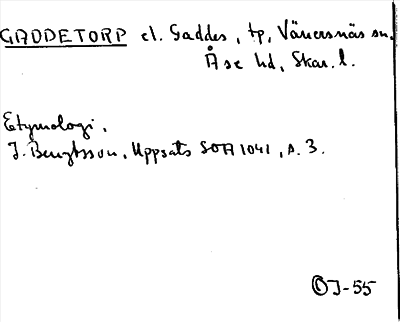 GADDETORP el. Gaddes, tp, Vänersnäs sn.
Åse hd, Skar. l.
Etymologi.
J. Bengtsson, Uppsats SOA 1041, s. 3.
OJ-55